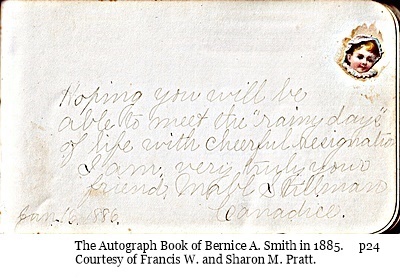 Hoping you will be
able to meet the "rainy days"
of life with cheerful resignation
I am, very truly your
friend, Mabl Stillman
Jan. 16, 1886. Canadice.
The Autograph Book of Bernice A. Smith in 1885. p24
Courtesy of Francis W. and Sharon M. Pratt.